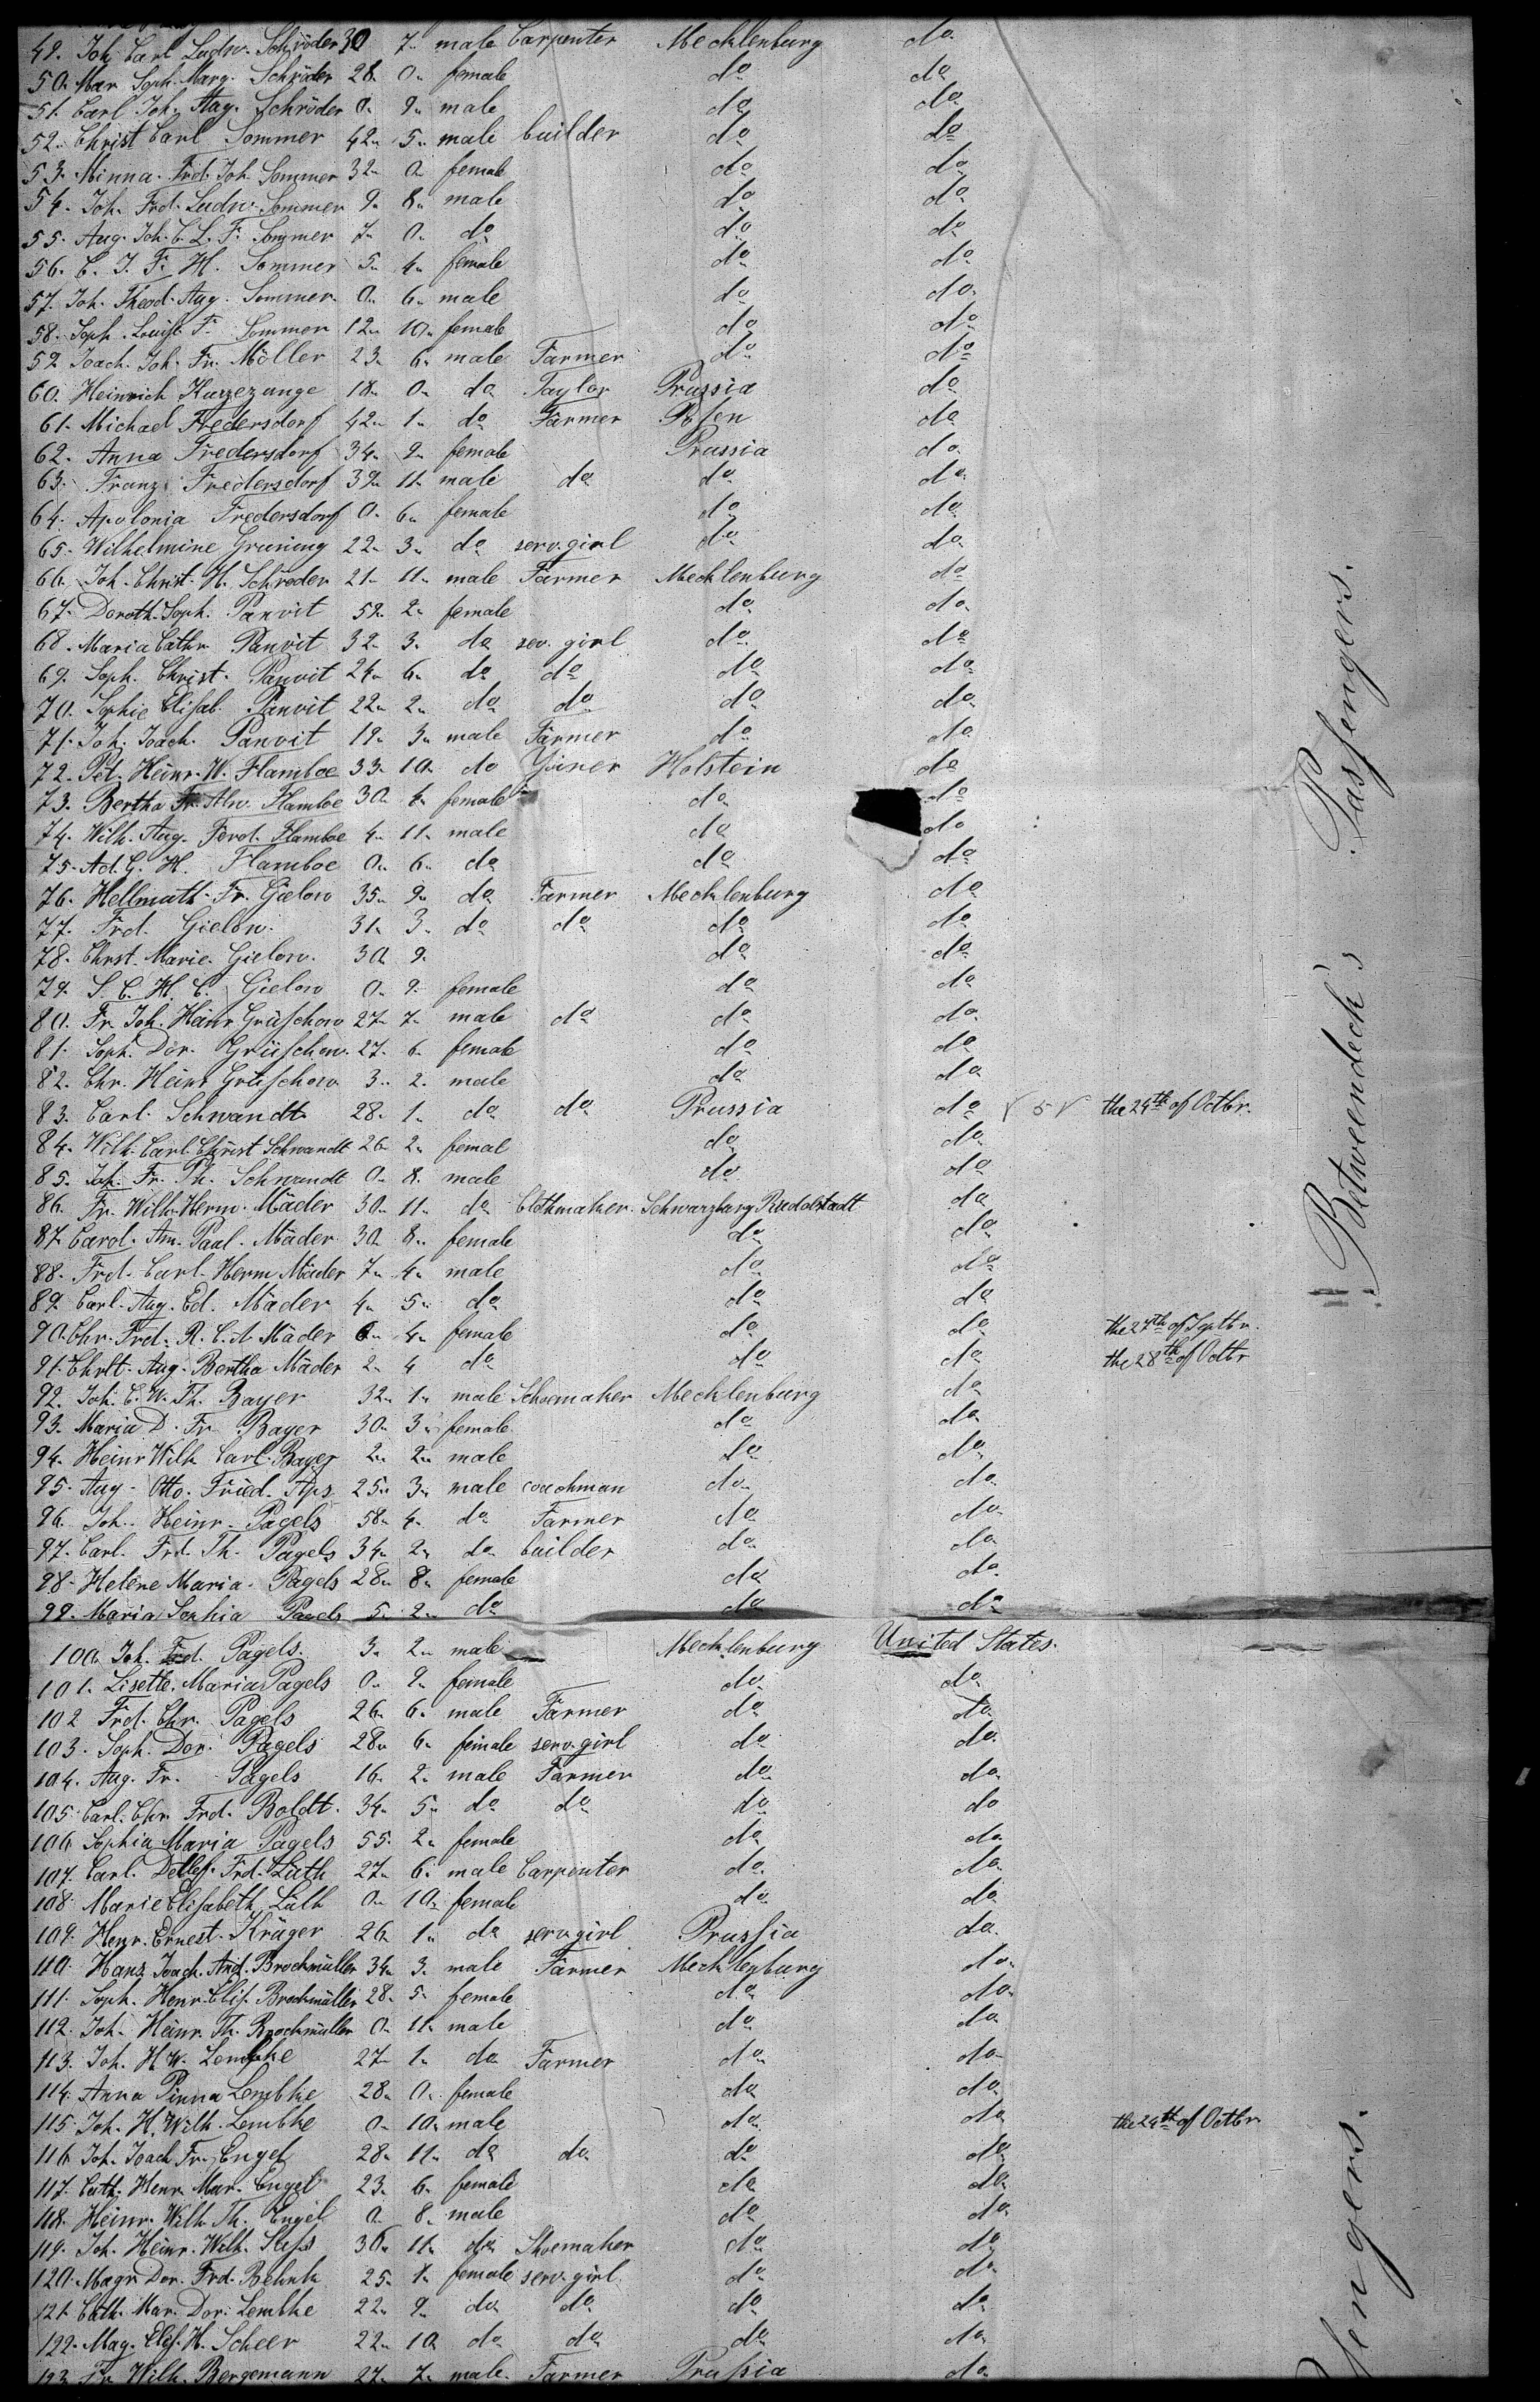 49. Joh. Carl Ludw. Schröder 30 7 male Carpenter Mecklenburg do
50. Mar. Soph. Marg. Schröder 28 0 female do do
51. Carl Joh. Aug. Schröder 0 9 male do do
52. Christ Carl Sommer 42 5 male builder do do
53. Minna Frd. Joh. Sommer 32 0 female do do
54. Joh. Frd. Ludw. Sommer 9 8 male do do
55. Aug. Joh. C. L. F. Sommer 7 0 do do do
56. C. J. F. H. Sommer 5 4 female do do
57. Joh. Theod. Aug. Sommer 0 6 male do do
58. Soph. Louise F. Sommer 12 10 female do do
59. Joach. Joh. Fr. Möller 23 6 male Farmer do do
60. Heinrich Kurzezunge 18 0 do Taylor Prussia do
61. Michael Fredersdorf 42 1 do Farmer Posen do
62. Anna Fredersdorf 34 9 female Prussia do
63. Franz Fredersdorf 39 11 male do do do
64. Apolonia Fredersdorf 0 6 female do do
65. Wilhelmine Gruning 22 3 do serv. girl do do
66. Joh. Christ. H. Schröder 21 11 male Farmer Mecklenburg do
67. Doroth. Soph. Panvit 59 2 female do do
68. Maria Cathr. Panvit 32 3 do sev. girl do do
69. Soph. Christ. Panvit 24 6 do do do do
70. Sophie Elisab. Panvit 22 2 do do do do
71. Joh. Joach. Panvit 19 3 male Farmer do do
72. Pet. Heinr. W. Flamboe 33 10 do Holstein do
73. Bertha Fr. Alw. Flamboe 30 4 female do do
74. Wilh. Aug. Ferd. Flamboe 4 11 male do do
75. Ad. G. H. Flamboe 0 6 do do do
76. Hellmuth Fr. Gielow 35 9 do Farmer Mecklenburg do
77. Frd. Gielow 31 3 do do do do
78. Chrst. Marie Gielow 30 9 do do
79. S. C. H. C. Gielow 0 9 female do do
80. Fr. Joh. Heinr Grüschow 27 7 male do do do
81. Soph. Dor. Grüschow 27 6 female do do
82. Chr. Heinr Grüschow 3 2 male do do
83. Carl Schwandt 28 1 do do Prussia do the 24th of Octbr.
84. Wilh. Carl. Christ Schwandt 26 2 femal do do
85. Joh. Fr. Th. Schwandt 0 8 male do do
86. Fr. Wilh. Herm. Mäder 30 11 do Clothmaker Schwarzburg Rudolstadt do
87. Carol. Am. Paul. Mäder 30 8 female do do
88. Frd. Carl Herm Mäder 7 4 male do do
89. Carl. Aug. Ed. Mäder 4 5 do do do
90. Chr. Frd. R. C. A. Mäder 6 4 female do do the 27th of Septbr.
91. Chrlt. Aug. Bertha Mäder 2 4 do do do the 28th of Octbr
92. Joh. C. W. Th. Bayer 32 1 male Schoemaker Mecklenburg do
93. Maria D. Fr. Bayer 30 3 female do do
94. Heinr Wilh Carl Bayer 2 2 male do do
95. Aug. Otto. Fried. Aps 25 3 male coachman do do
96. Joh. Heinr. Pagels 58 4 do Farmer do do
97. Carl. Frd. Th. Pagels 34 2 do builder do do
98. Helene Maria Pagels 28 8 female do do
99. Maria Sophia Pagels 5 2 do do do
100. Joh. Frd. Pagels 3 2 male Mecklenburg United States.
101. Lisette Maria Pagels 0 9 female do do
102 Frd. Chr. Pagels 26 6 male Farmer do do
103. Soph. Dor. Pagels 28 6 female serv. girl do do
104. Aug. Fr. Pagels 16 2 male Farmer do do
105 Carl. Chr. Frd. Boldt 34 5 do do do do
106 Sophia Maria Pagels 55 2 female do do
107. Carl. Detlef. Frd. Lüth 27 6 male Carpenter do do
108 Marie Elisabeth Lüth 0 10 female do do
109. Henr. Ernest. Krüger 26 1 do serv girl Prussia do
110. Hans Joach. And. Brockmüller 34 3 male Farmer Mecklenburg do
111. Soph. Henr. Elis. Brockmüller 28 5 female do do
112. Joh. Heinr. Th. Brockmüller 0 11 male do do
113. Joh. H. W. Lembke 27 1 do Farmer do do
114. Anna Pinna Lembke 28 0 female do do
115. Joh. H. Wilh. Lembke 0 10 male do do the 24th of Octbr.
116. Joh. Joach Fr. Engel 28 11 do do do do
117. Cath. Henr. Mar. Engel 23 6 female do do
118. Heinr. Wilh. Th. Engel 0 8 male do do
119. Joh. Heinr. Wilh. 30 11 do Shoemaker do do
120. Magr Dor. Frd. Behnk 25 1 female serv. girl do do
121. Cath. Mar. Dor. Lembke 22 9 do do do do
122. Mag. Elis. H. Scheer 22 10 do do do do
123 Fr. Wilh. Bergemann 27 7 male Farmer Prussia do
Betweendeck's Passengers.
sengers.